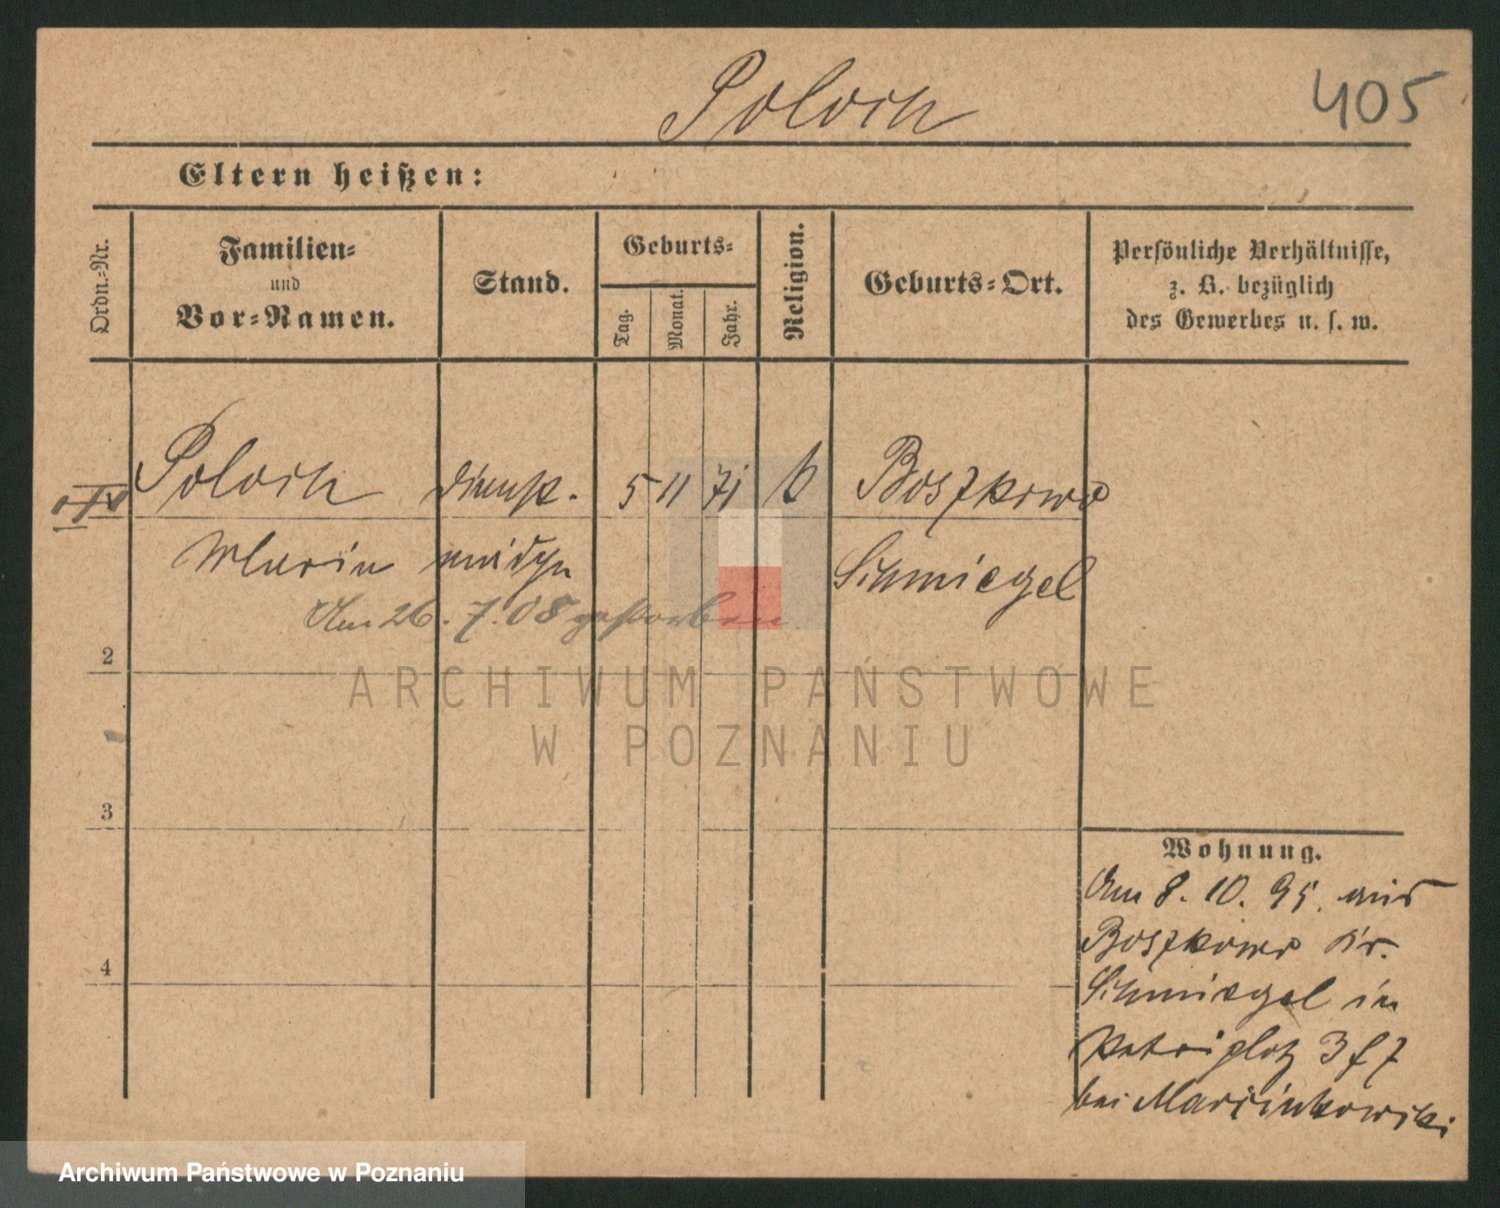 405
Poloch
Eltern heißen:
Ordn.-Nr.
Familien-
und
Vor-Namen.
Stand.
Geburts-
Tag.
Monat.
Jahr.
Religion.
Geburts-Ort.
Persönliche Verhältnisse,
z. B. bezüglich
des Gewerbes u. s. w.
Poloch dienst- 5 11 71 k Boszkowo
Maria mädchen Schmiegel
Am 26. 7. 08 gestorben
2
3
4
Wohnung.
Am 8. 10. 95. aus
Boszkowo Kr.
Schmiegel in
Petriplatz 3
bei Marcinkowski
ARCHIWUM PAŃSTWOWE
W POZNANIU
Archiwum Państwowe w Poznaniu